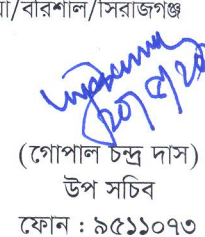 /বরিশাল/সিরাজগঞ্জ
(গোপাল চন্দ্র দাস)
উপ সচিব
ফোন : ৯৫১১০৭৩